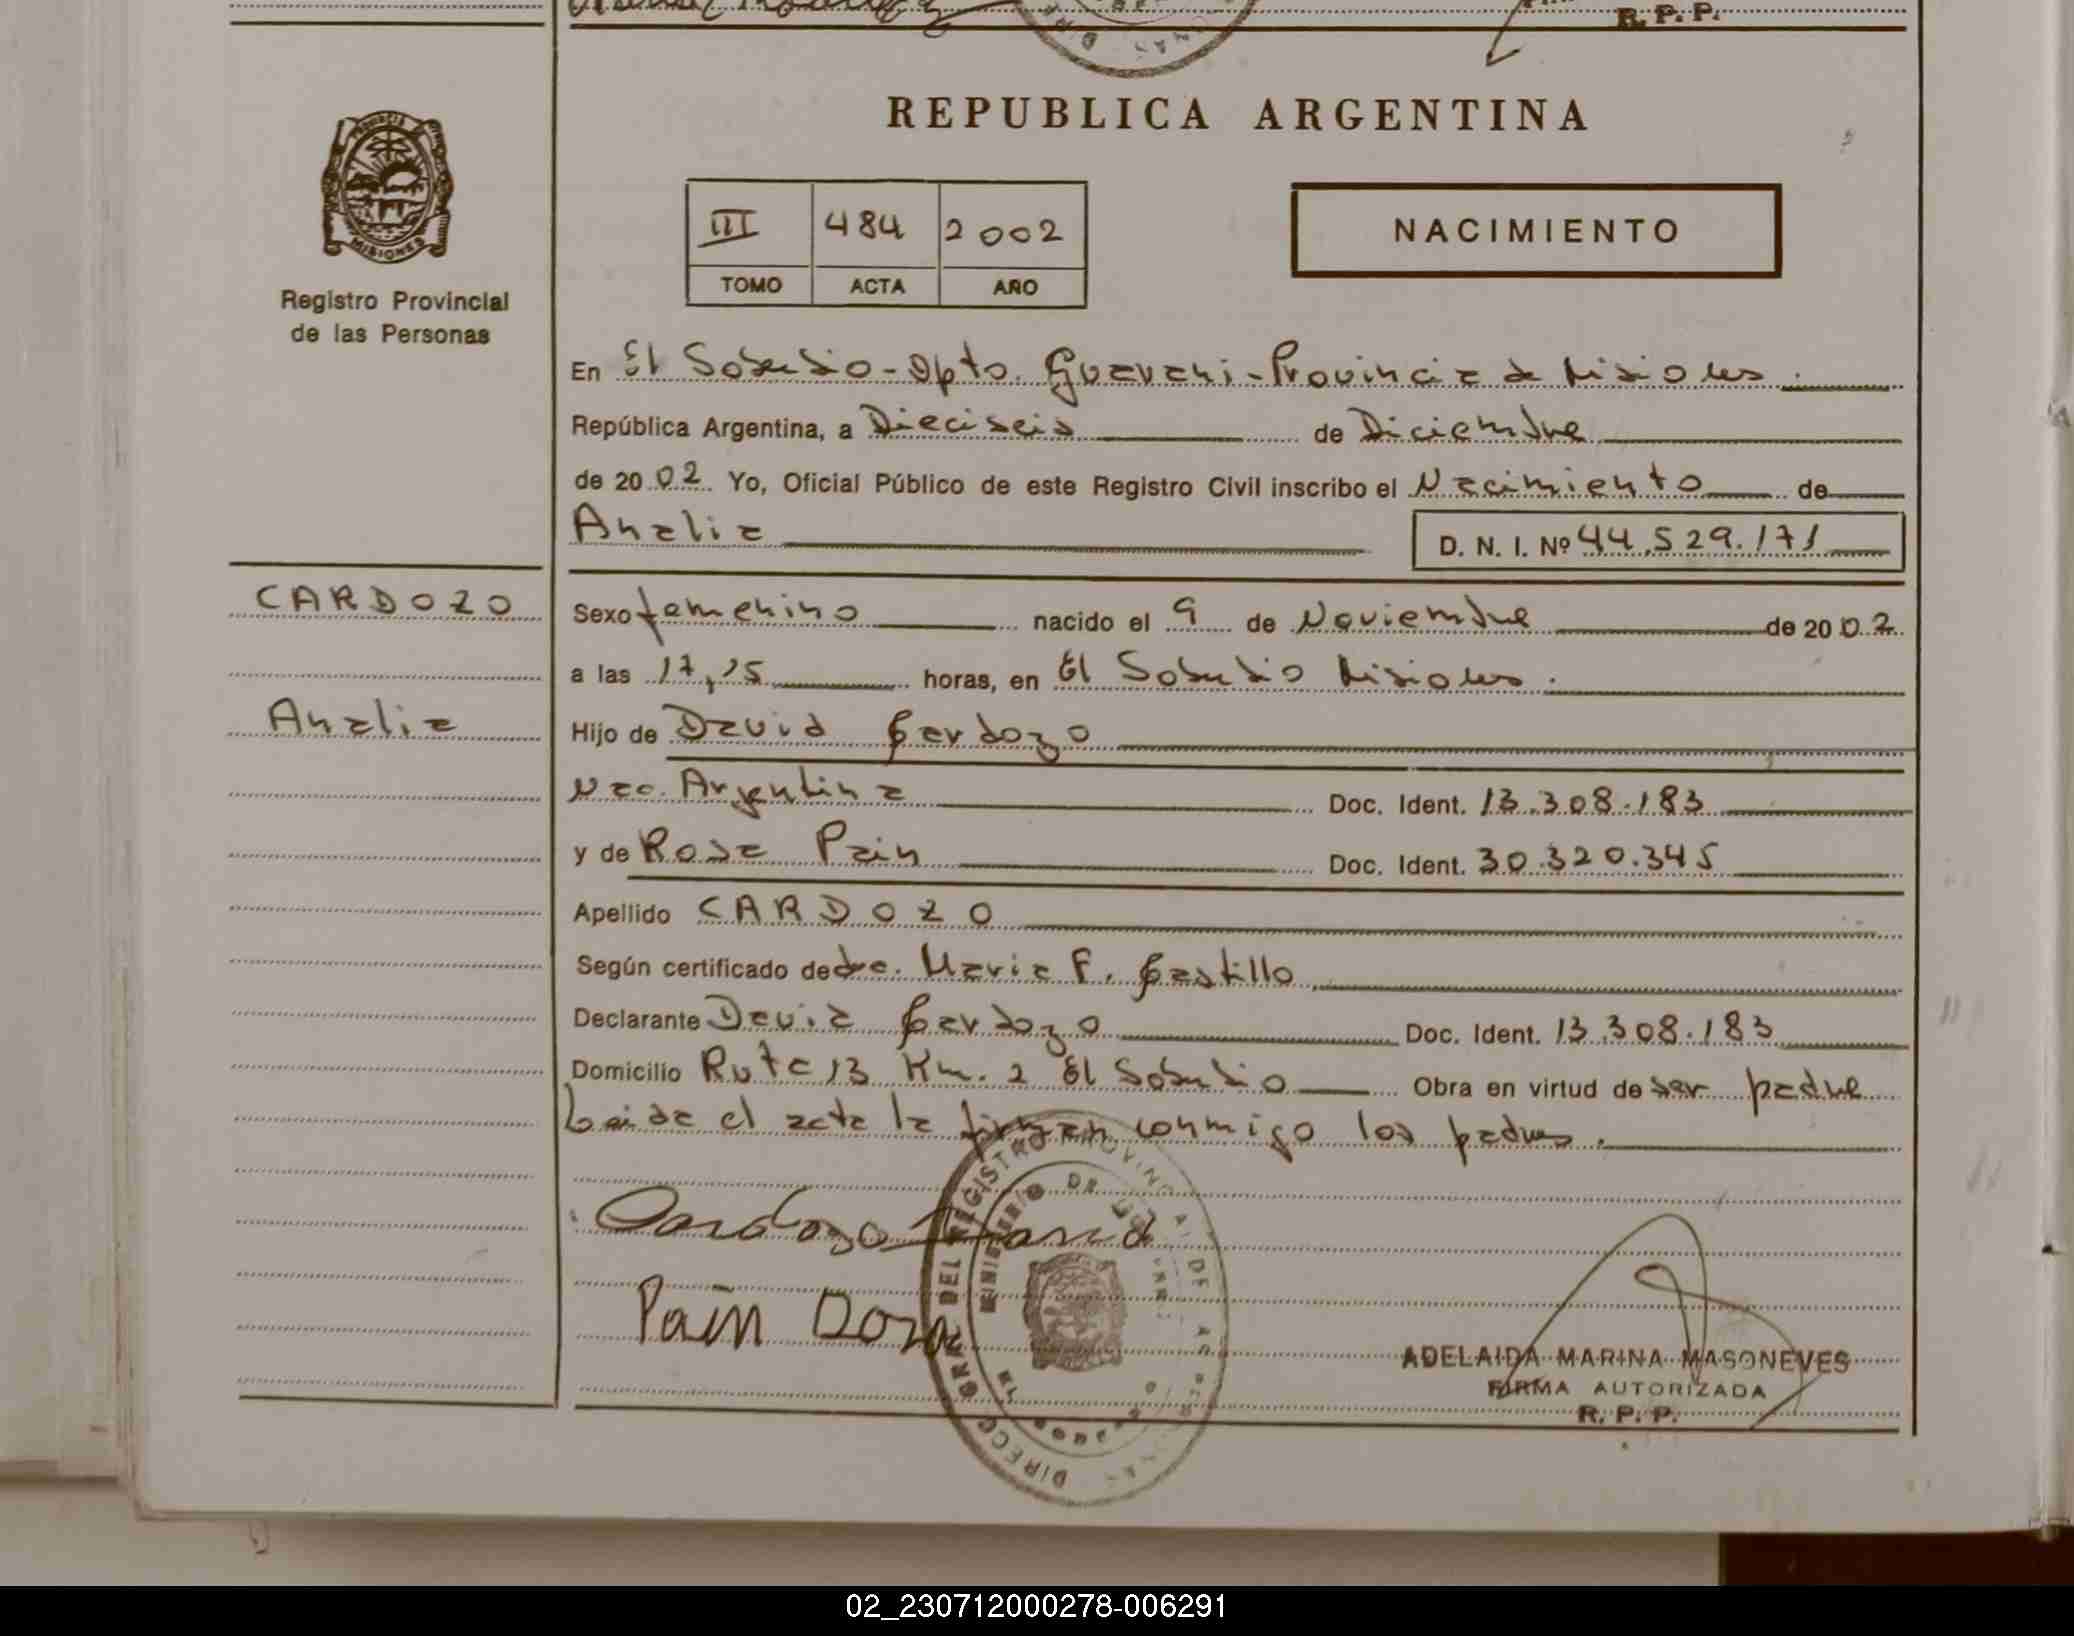 R. P. P.
REPUBLICA ARGENTINA
PROVINCIA
MISIONES
Registro Provincial
de las Personas
III 484 2002
TOMO ACTA AÑO
NACIMIENTO
En El Soberbio - Dpto. Guarani - Provincia de Misiones.
República Argentina, a Dieciseis de Diciembre
de 2002 Yo, Oficial Público de este Registro Civil inscribo el Nacimiento de
Analia D. N. I. Nº 44.529.171
CARDOZO
Analia
Sexo femenino nacido el 9 de Noviembre de 2002
a las 17,15 horas, en El Soberbio Misiones.
Hijo de David Cardozo
Nac. Argentina Doc. Ident. 13.308.183
y de Rosa Pain Doc. Ident. 30.320.345
Apellido CARDOZO
Según certificado de dra. Maria F. Castillo
Declarante David Cardozo Doc. Ident. 13.308.183
Domicilio Ruta 13 Km. 2 El Soberbio Obra en virtud de ser padre
Leida el acta la firman conmigo los padres.
Cardozo David
Pain Rosa
ADELAIDA MARINA MASONEVES
FIRMA AUTORIZADA
R. P. P.
02_230712000278-006291